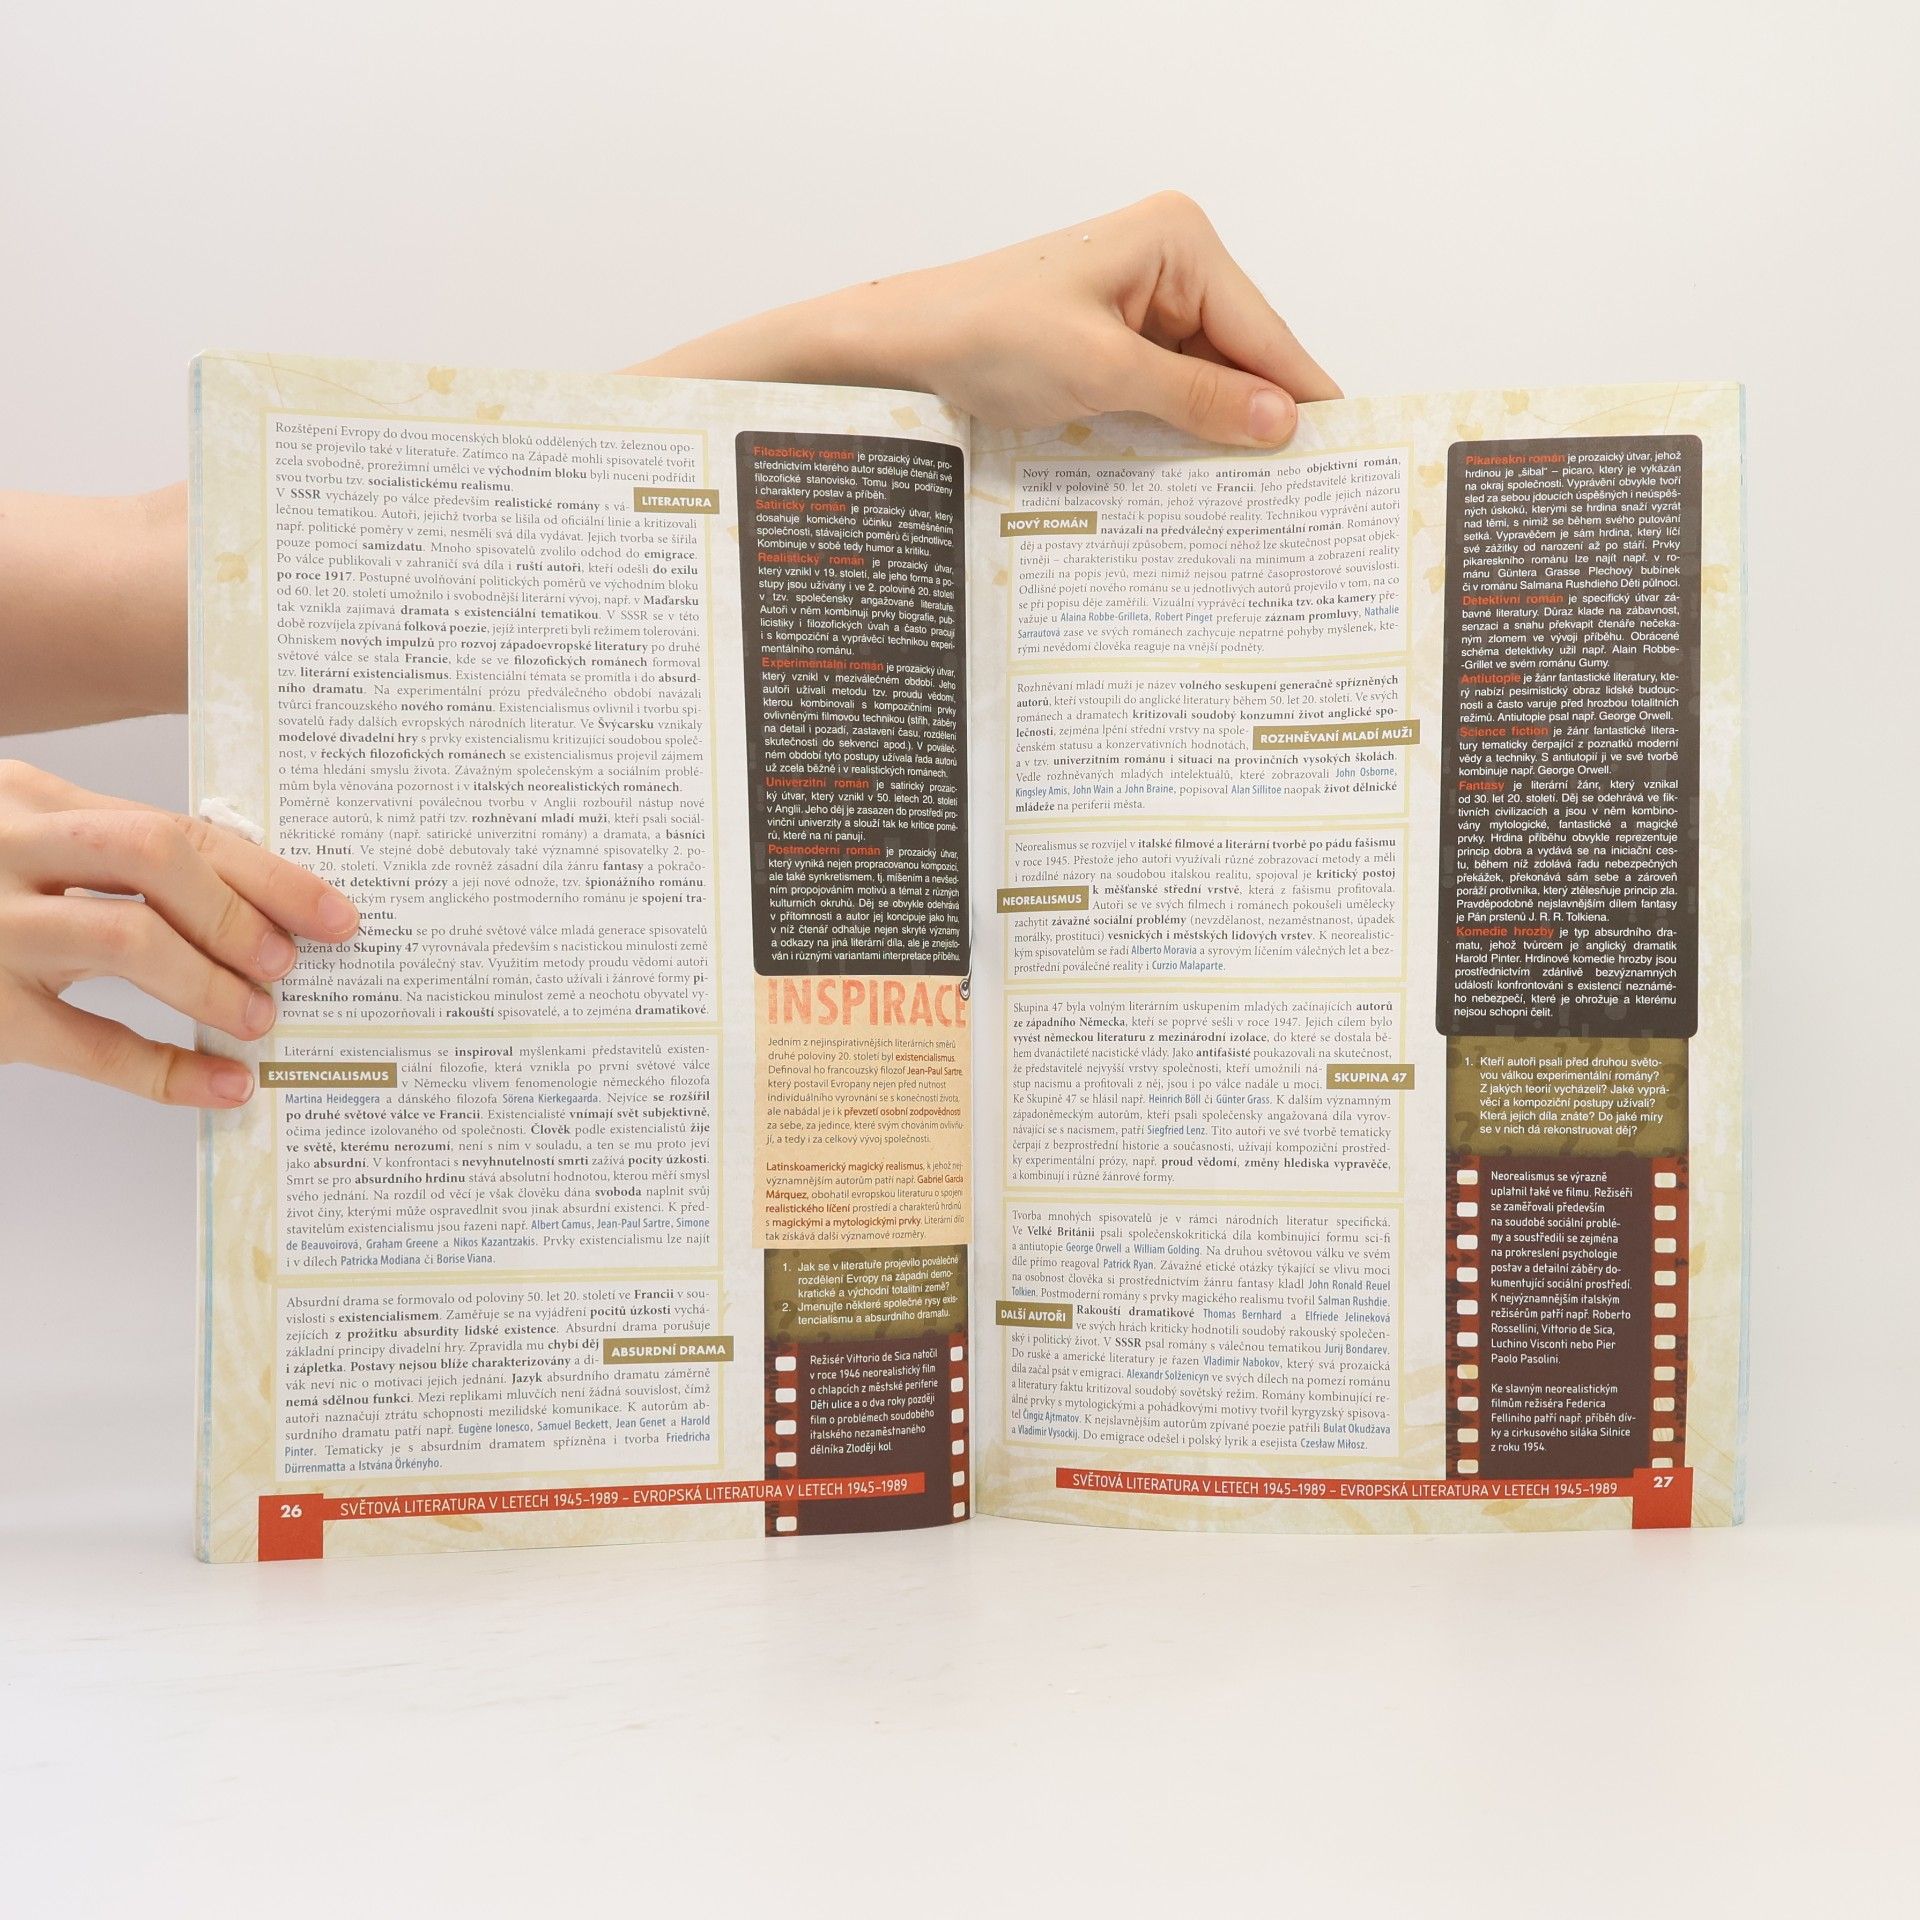 Rozštěpení Evropy do dvou mocenských bloků oddělených tzv. železnou opo-
nou se projevilo také v literatuře. Zatímco na Západě mohli spisovatelé tvořit
zcela svobodně, prorežimní umělci ve východním bloku byli nuceni podřídit
svou tvorbu tzv. socialistickému realismu.
V SSSR vycházely po válce především realistické romány s vá-
LITERATURA
lečnou tematikou. Autoři, jejichž tvorba se lišila od oficiální linie a kritizovali
např. politické poměry v zemi, nesměli svá díla vydávat. Jejich tvorba se šířila
pouze pomocí samizdatu. Mnoho spisovatelů zvolilo odchod do emigrace.
Po válce publikovali v zahraničí svá díla i ruští autoři, kteří odešli do exilu
po roce 1917. Postupné uvolňování politických poměrů ve východním bloku
od 60. let 20. století umožnilo i svobodnější literární vývoj, např. v Maďarsku
tak vznikla zajímavá dramata s existenciální tematikou. V SSSR se v této
době rozvíjela zpívaná folková poezie, jejíž interpreti byli režimem tolerováni.
Ohniskem nových impulzů pro rozvoj západoevropské literatury po druhé
světové válce se stala Francie, kde se ve filozofických románech formoval
tzv. literární existencialismus. Existenciální témata se promítla i do absurd-
ního dramatu. Na experimentální prózu předválečného období navázali
tvůrci francouzského nového románu. Existencialismus ovlivnil i tvorbu spi-
sovatelů řady dalších evropských národních literatur. Ve Švýcarsku vznikaly
modelové divadelní hry s prvky existencialismu kritizující soudobou společ-
nost, v řeckých filozofických románech se existencialismus projevil zájmem
o téma hledání smyslu života. Závažným společenským a sociálním problé-
mům byla věnována pozornost i v italských neorealistických románech.
Poměrně konzervativní poválečnou tvorbu v Anglii rozbouřil nástup nové
generace autorů, k nimž patří tzv. rozhněvaní mladí muži, kteří psali sociál-
někritické romány (např. satirické univerzitní romány) a dramata, a básníci
z tzv. Hnutí. Ve stejné době debutovaly také významné spisovatelky 2. po-
iny 20. století. Vznikla zde rovněž zásadní díla žánru fantasy a pokračo-
vět detektivní prózy a její nové odnože, tzv. špionážního románu.
tickým rysem anglického postmoderního románu je spojení tra-
mentu.
Německu se po druhé světové válce mladá generace spisovatelů
ružená do Skupiny 47 vyrovnávala především s nacistickou minulostí země
kriticky hodnotila poválečný stav. Využitím metody proudu vědomí autoři
formálně navázali na experimentální román, často užívali i žánrové formy pi-
kareskního románu. Na nacistickou minulost země a neochotu obyvatel vy-
rovnat se s ní upozorňovali i rakouští spisovatelé, a to zejména dramatikové.
Literární existencialismus se inspiroval myšlenkami představitelů existen-
EXISTENCIALISMUS
ciální filozofie, která vznikla po první světové válce
v Německu vlivem fenomenologie německého filozofa
Martina Heideggera a dánského filozofa Sörena Kierkegaarda. Nejvíce se rozšířil
po druhé světové válce ve Francii. Existencialisté vnímají svět subjektivně,
očima jedince izolovaného od společnosti. Člověk podle existencialistů žije
ve světě, kterému nerozumí, není s ním v souladu, a ten se mu proto jeví
jako absurdní. V konfrontaci s nevyhnutelností smrti zažívá pocity úzkosti.
Smrt se pro absurdního hrdinu stává absolutní hodnotou, kterou měří smysl
svého jednání. Na rozdíl od věcí je však člověku dána svoboda naplnit svůj
život činy, kterými může ospravedlnit svou jinak absurdní existenci. K před-
stavitelům existencialismu jsou řazeni např. Albert Camus, Jean-Paul Sartre, Simone
de Beauvoirová, Graham Greene a Nikos Kazantzakis. Prvky existencialismu lze najít
i v dílech Patricka Modiana či Borise Viana.
Absurdní drama se formovalo od poloviny 50. let 20. století ve Francii v sou-
vislosti s existencialismem. Zaměřuje se na vyjádření pocitů úzkosti vychá-
zejících z prožitku absurdity lidské existence. Absurdní drama porušuje
základní principy divadelní hry. Zpravidla mu chybí děj
ABSURDNÍ DRAMA
i zápletka. Postavy nejsou blíže charakterizovány a di-
vák neví nic o motivaci jejich jednání. Jazyk absurdního dramatu záměrně
nemá sdělnou funkci. Mezi replikami mluvčích není žádná souvislost, čímž
autoři naznačují ztrátu schopnosti mezilidské komunikace. K autorům ab-
surdního dramatu patří např. Eugène Ionesco, Samuel Beckett, Jean Genet a Harold
Pinter. Tematicky je s absurdním dramatem spřízněna i tvorba Friedricha
Dürrenmatta a Istvána Örkényho.
Filozofický román je prozaický útvar, pro-
střednictvím kterého autor sděluje čtenáři své
filozofické stanovisko. Tomu jsou podřízeny
i charaktery postav a příběh.
Satirický román je prozaický útvar, který
dosahuje komického účinku zesměšněním
společnosti, stávajících poměrů či jednotlivce.
Kombinuje v sobě tedy humor a kritiku.
Realistický román je prozaický útvar,
který vznikl v 19. století, ale jeho forma a po-
stupy jsou užívány i ve 2. polovině 20. století
v tzv. společensky angažované literatuře.
Autoři v něm kombinují prvky biografie, pub-
licistiky i filozofických úvah a často pracují
i s kompoziční a vyprávěcí technikou experi-
mentálního románu.
Experimentální román je prozaický útvar,
který vznikl v meziválečném období. Jeho
autoři užívali metodu tzv. proudu vědomí,
kterou kombinovali s kompozičními prvky
ovlivněnými filmovou technikou (střih, záběry
na detail i pozadí, zastavení času, rozdělení
skutečnosti do sekvencí apod.). V pováleč-
ném období tyto postupy užívala řada autorů
už zcela běžně i v realistických románech.
Univerzitní román je satirický prozaic-
ký útvar, který vznikl v 50. letech 20. století
v Anglii. Jeho děj je zasazen do prostředí pro-
vinční univerzity a slouží tak ke kritice pomě-
rů, které na ní panují.
Postmoderní román je prozaický útvar,
který vyniká nejen propracovanou kompozicí,
ale také synkretismem, tj. míšením a nevšed-
ním propojováním motivů a témat z různých
kulturních okruhů. Děj se obvykle odehrává
v přítomnosti a autor jej koncipuje jako hru,
v níž čtenář odhaluje nejen skryté významy
a odkazy na jiná literární díla, ale je znejisťo-
ván i různými variantami interpretace příběhu.
INSPIRACE
Jedním z nejinspirativnějších literárních směrů
druhé poloviny 20. století byl existencialismus.
Definoval ho francouzský filozof Jean-Paul Sartre,
který postavil Evropany nejen před nutnost
individuálního vyrovnání se s konečností života,
ale nabádal je i k převzetí osobní zodpovědnosti
za sebe, za jedince, které svým chováním ovlivňu-
jí, a tedy i za celkový vývoj společnosti.
Latinskoamerický magický realismus, k jehož nej-
významnějším autorům patří např. Gabriel García
Márquez, obohatil evropskou literaturu o spojení
realistického líčení prostředí a charakterů hrdinů
s magickými a mytologickými prvky. Literární dílo
tak získává další významové rozměry.
1. Jak se v literatuře projevilo poválečné
rozdělení Evropy na západní demo-
kratické a východní totalitní země?
2. Jmenujte některé společné rysy exis-
tencialismu a absurdního dramatu.
Režisér Vittorio de Sica natočil
v roce 1946 neorealistický film
o chlapcích z městské periferie
Děti ulice a o dva roky později
film o problémech soudobého
italského nezaměstnaného
dělníka Zloději kol.
26
SVĚTOVÁ LITERATURA V LETECH 1945–1989 – EVROPSKÁ LITERATURA V LETECH 1945–1989
Nový román, označovaný také jako antiromán nebo objektivní román,
vznikl v polovině 50. let 20. století ve Francii. Jeho představitelé kritizovali
tradiční balzacovský román, jehož výrazové prostředky podle jejich názoru
NOVÝ ROMÁN
nestačí k popisu soudobé reality. Technikou vyprávění autoři
navázali na předválečný experimentální román. Románový
děj a postavy ztvárňují způsobem, pomocí něhož lze skutečnost popsat objek-
tivněji – charakteristiku postav zredukovali na minimum a zobrazení reality
omezili na popis jevů, mezi nimiž nejsou patrné časoprostorové souvislosti.
Odlišné pojetí nového románu se u jednotlivých autorů projevilo v tom, na co
se při popisu děje zaměřili. Vizuální vyprávěcí technika tzv. oka kamery pře-
važuje u Alaina Robbe-Grilleta, Robert Pinget preferuje záznam promluvy, Nathalie
Sarrautová zase ve svých románech zachycuje nepatrné pohyby myšlenek, kte-
rými nevědomí člověka reaguje na vnější podněty.
Rozhněvaní mladí muži je název volného seskupení generačně spřízněných
autorů, kteří vstoupili do anglické literatury během 50. let 20. století. Ve svých
románech a dramatech kritizovali soudobý konzumní život anglické spo-
lečnosti, zejména lpění střední vrstvy na spole-
ROZHNĚVANÍ MLADÍ MUŽI
čenském statusu a konzervativních hodnotách,
a v tzv. univerzitním románu i situaci na provinčních vysokých školách.
Vedle rozhněvaných mladých intelektuálů, které zobrazovali John Osborne,
Kingsley Amis, John Wain a John Braine, popisoval Alan Sillitoe naopak život dělnické
mládeže na periferii města.
Neorealismus se rozvíjel v italské filmové a literární tvorbě po pádu fašismu
v roce 1945. Přestože jeho autoři využívali různé zobrazovací metody a měli
i rozdílné názory na soudobou italskou realitu, spojoval je kritický postoj
NEOREALISMUS
k měšťanské střední vrstvě, která z fašismu profitovala.
Autoři se ve svých filmech i románech pokoušeli umělecky
zachytit závažné sociální problémy (nevzdělanost, nezaměstnanost, úpadek
morálky, prostituci) vesnických i městských lidových vrstev. K neorealistic-
kým spisovatelům se řadí Alberto Moravia a syrovým líčením válečných let a bez-
prostřední poválečné reality i Curzio Malaparte.
Skupina 47 byla volným literárním uskupením mladých začínajících autorů
ze západního Německa, kteří se poprvé sešli v roce 1947. Jejich cílem bylo
vyvést německou literaturu z mezinárodní izolace, do které se dostala bě-
hem dvanáctileté nacistické vlády. Jako antifašisté poukazovali na skutečnost,
že představitelé nejvyšší vrstvy společnosti, kteří umožnili ná-
SKUPINA 47
stup nacismu a profitovali z něj, jsou i po válce nadále u moci.
Ke Skupině 47 se hlásil např. Heinrich Böll či Günter Grass. K dalším významným
západoněmeckým autorům, kteří psali společensky angažovaná díla vyrov-
návající se s nacismem, patří Siegfried Lenz. Tito autoři ve své tvorbě tematicky
čerpají z bezprostřední historie a současnosti, užívají kompoziční prostřed-
ky experimentální prózy, např. proud vědomí, změny hlediska vypravěče,
a kombinují i různé žánrové formy.
Tvorba mnohých spisovatelů je v rámci národních literatur specifická.
Ve Velké Británii psali společenskokritická díla kombinující formu sci-fi
a antiutopie George Orwell a William Golding. Na druhou světovou válku ve svém
díle přímo reagoval Patrick Ryan. Závažné etické otázky týkající se vlivu moci
na osobnost člověka si prostřednictvím žánru fantasy kladl John Ronald Reuel
Tolkien. Postmoderní romány s prvky magického realismu tvořil Salman Rushdie.
DALŠÍ AUTOŘI
Rakouští dramatikové Thomas Bernhard a Elfriede Jelineková
ve svých hrách kriticky hodnotili soudobý rakouský společen-
ský i politický život. V SSSR psal romány s válečnou tematikou Jurij Bondarev.
Do ruské a americké literatury je řazen Vladimir Nabokov, který svá prozaická
díla začal psát v emigraci. Alexandr Solženicyn ve svých dílech na pomezí románu
a literatury faktu kritizoval soudobý sovětský režim. Romány kombinující re-
álné prvky s mytologickými a pohádkovými motivy tvořil kyrgyzský spisova-
tel Čingiz Ajtmatov. K nejslavnějším autorům zpívané poezie patřili Bulat Okudžava
a Vladimir Vysockij. Do emigrace odešel i polský lyrik a esejista Czesław Miłosz.
Pikareskní román je prozaický útvar, jehož
hrdinou je „šibal“ – picaro, který je vykázán
na okraj společnosti. Vyprávění obvykle tvoří
sled za sebou jdoucích úspěšných i neúspěš-
ných úskoků, kterými se hrdina snaží vyzrát
nad těmi, s nimiž se během svého putování
setká. Vypravěčem je sám hrdina, který líčí
své zážitky od narození až po stáří. Prvky
pikareskního románu lze najít např. v ro-
mánu Güntera Grasse Plechový bubínek
či v románu Salmana Rushdieho Děti půlnoci.
Detektivní román je specifický útvar zá-
bavné literatury. Důraz klade na zábavnost,
senzaci a snahu překvapit čtenáře nečeka-
ným zlomem ve vývoji příběhu. Obrácené
schéma detektivky užil např. Alain Robbe-
-Grillet ve svém románu Gumy.
Antiutopie je žánr fantastické literatury, kte-
rý nabízí pesimistický obraz lidské budouc-
nosti a často varuje před hrozbou totalitních
režimů. Antiutopie psal např. George Orwell.
Science fiction je žánr fantastické litera-
tury tematicky čerpající z poznatků moderní
vědy a techniky. S antiutopií ji ve své tvorbě
kombinuje např. George Orwell.
Fantasy je literární žánr, který vznikal
od 30. let 20. století. Děj se odehrává ve fik-
tivních civilizacích a jsou v něm kombino-
vány mytologické, fantastické a magické
prvky. Hrdina příběhu obvykle reprezentuje
princip dobra a vydává se na iniciační ces-
tu, během níž zdolává řadu nebezpečných
překážek, překonává sám sebe a zároveň
poráží protivníka, který ztělesňuje princip zla.
Pravděpodobně nejslavnějším dílem fantasy
je Pán prstenů J. R. R. Tolkiena.
Komedie hrozby je typ absurdního dra-
matu, jehož tvůrcem je anglický dramatik
Harold Pinter. Hrdinové komedie hrozby jsou
prostřednictvím zdánlivě bezvýznamných
událostí konfrontováni s existencí neznámé-
ho nebezpečí, které je ohrožuje a kterému
nejsou schopni čelit.
1. Kteří autoři psali před druhou světo-
vou válkou experimentální romány?
Z jakých teorií vycházeli? Jaké vyprá-
věcí a kompoziční postupy užívali?
Která jejich díla znáte? Do jaké míry
se v nich dá rekonstruovat děj?
Neorealismus se výrazně
uplatnil také ve filmu. Režiséři
se zaměřovali především
na soudobé sociální problé-
my a soustředili se zejména
na prokreslení psychologie
postav a detailní záběry do-
kumentující sociální prostředí.
K nejvýznamnějším italským
režisérům patří např. Roberto
Rossellini, Vittorio de Sica,
Luchino Visconti nebo Pier
Paolo Pasolini.
Ke slavným neorealistickým
filmům režiséra Federica
Felliniho patří např. příběh dív-
ky a cirkusového siláka Silnice
z roku 1954.
SVĚTOVÁ LITERATURA V LETECH 1945–1989 – EVROPSKÁ LITERATURA V LETECH 1945–1989
27